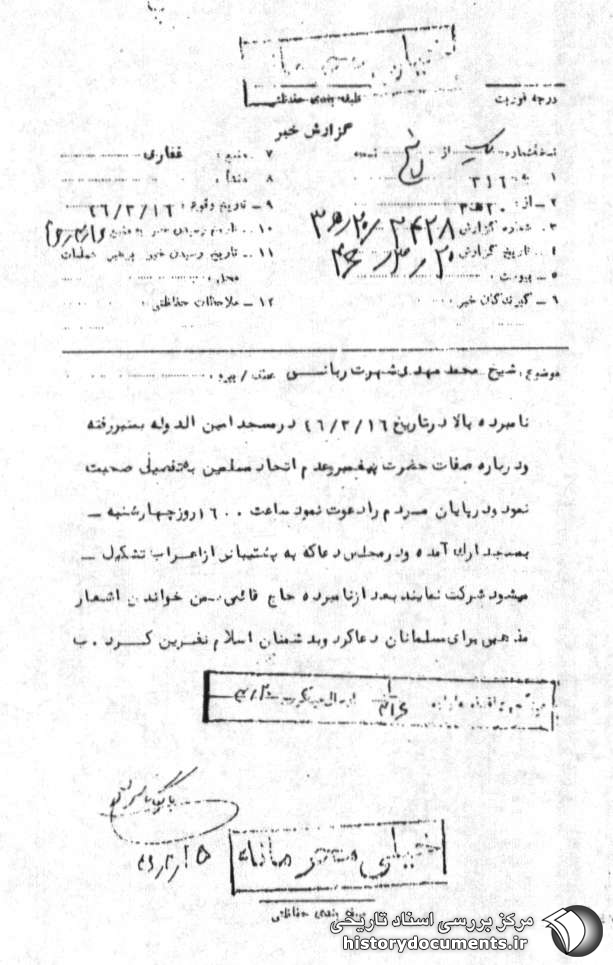 خیلی محرمانه
طبقه بندی حفاظتی
درجه فوریت
گزارش خبر
نسخه شماره یک از نسخه
۱ـ به ۳۱۶
۲ـ از: ۲۰ ه‍ ۳
۳ـ شماره گزارش ۳۴۲۸/۲۰ه‍۳
۴ـ تاریخ گزارش ۴۶/۳/۲۰
۵ـ پیوست
۶ـ گیرندگان خبر
۷ـ منبع: غفاری
۸ـ منشأ:
۹ـ تاریخ وقوع: ۴۶/۳/۱۶
۱۰ـ تاریخ رسیدن خبر به منبع
۱۱ـ تاریخ رسیدن خبر برهبر عملیات
محل:
۱۲ـ ملاحظات حفاظتی:
موضوع: شیخ محمد مهدی شهرت ربانی
عطف / پیرو
نامبرده بالا در تاریخ ۴۶/۳/۱۶ در مسجد امین الدوله بمنبر رفته
و درباره صفات حضرت پیغمبر و عدم اتحاد مسلمین به تفصیل صحبت
نمود و در پایان مردم را دعوت نمود ساعت ۱۶۰۰ روز چهارشنبه ـ
بمسجد ارک آمده و در مجلس دعا که به پشتیبانی از اعراب تشکیل ـ
میشود شرکت نمایند بعد از نامبرده حاج قائمی ضمن خواندن اشعار
مذهبی برای مسلمانان دعا کرد و بدشمنان اسلام نفرین کرد . ب
۳۱۶
بایگانی
خیلی محرمانه
طبقه بندی حفاظتی
مرکز بررسی اسناد تاریخی
historydocuments.ir